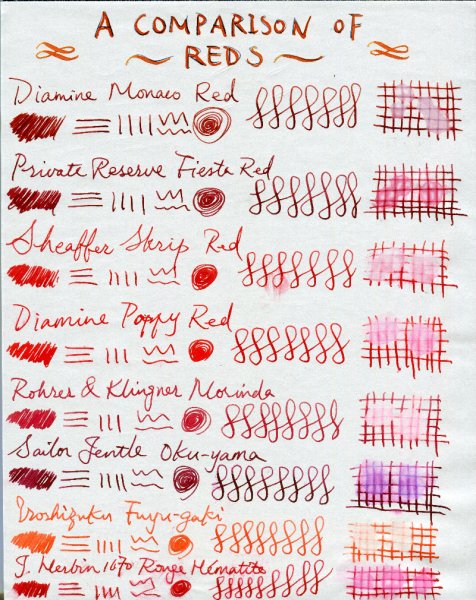 A COMPARISON OF
REDS
Diamine Monaco Red
Private Reserve Fiesta Red
Sheaffer Skrip Red
Diamine Poppy Red
Rohrer & Klingner Morinda
Sailor Jentle Oku-yama
Iroshizuku Fuyu-gaki
J. Herbin 1670 Rouge Hématite